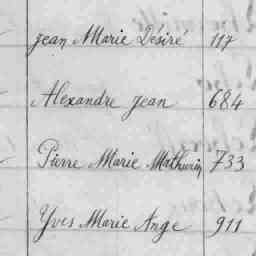 Jean Marie Désiré 117
Alexandre Jean 684
Pierre Marie Mathurin 733
Yves Marie Ange 911